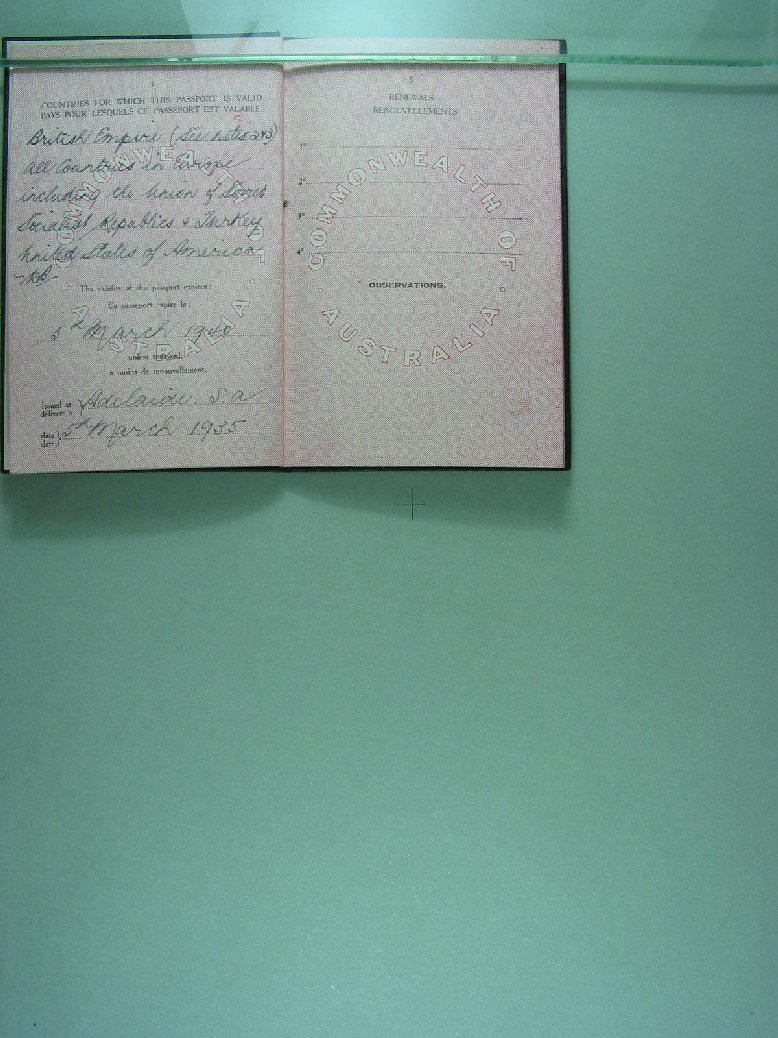 4
COUNTRIES FOR WHICH THIS PASSPORT IS VALID
PAYS POUR LESQUELS CE PASSEPORT EST VALABLE
British Empire (See notes 2&3)
All Countries in Europe
including the Union of Soviet
Socialist Republics & Turkey
United States of America
COMMONWEALTH OF
AUSTRALIA
The validity of this passport expires:
Ce passeport expire le:
5th March 1940
unless renewed.
à moins de renouvellement.
Issued at
délivré à
Adelaide. S.A
date
5th March 1935
5
RENEWALS
RENOUVELLEMENTS
1°
2°
3°
4°
COMMONWEALTH OF
OBSERVATIONS.
AUSTRALIA